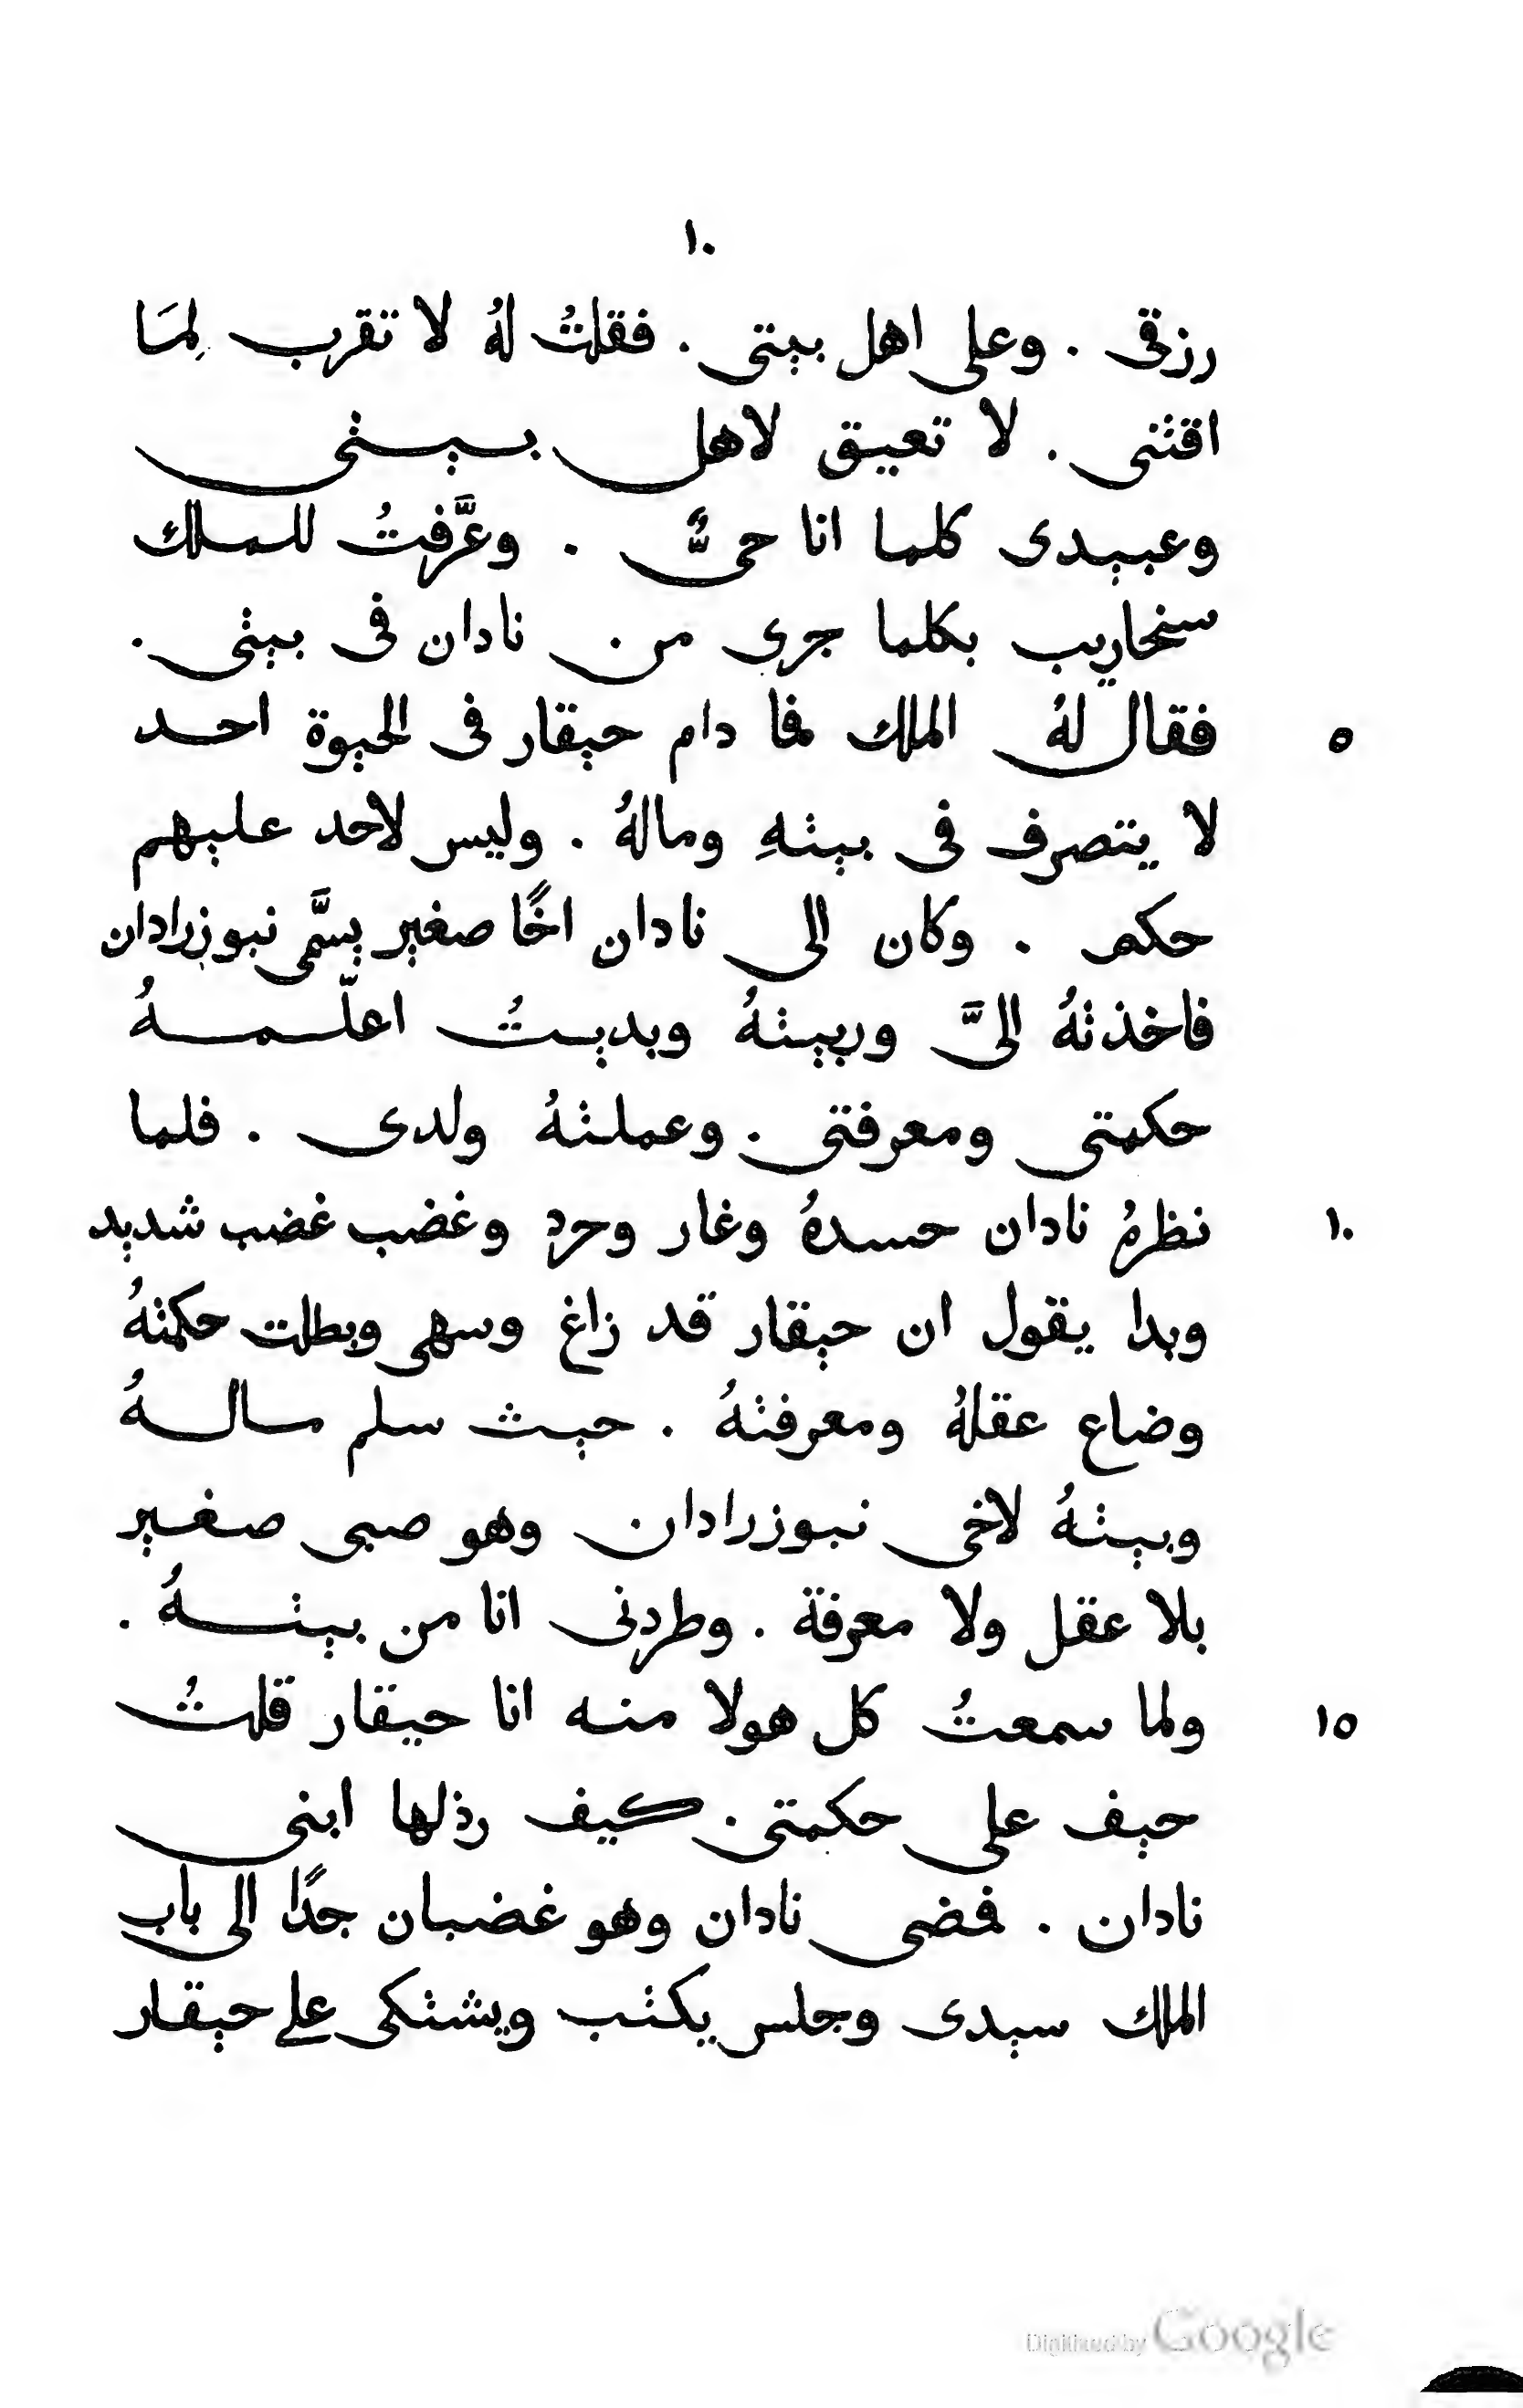 ١٠
رزقى . وعلى اهل بيتى . فقلتُ لهُ لا تقرب لِمَا
اقتنى . لا تعيق لاهل بيتى
وعبيدى كلما انا حىٌّ . وعَرَّفتُ للملك
سنحاريب بكلما جرى من نادان فى بيتى .
٥ فقال لهُ الملك فما دام حيقار فى الحيوة احد
لا يتصرف فى بيتهِ ومالهُ . وليس لاحد عليهم
حكم . وكان الى نادان اخًا صغير يسَّمى نبوزرادان
فاخذتهُ الىَّ وربيتهُ وبديتُ اعلّمهُ
حكمتى ومعرفتى . وعملتهُ ولدى . فلما
١٠ نظرهُ نادان حسدهُ وغار وحرد وغضب غضب شديد
وبدا يقول ان حيقار قد زاغ وسهى وبطلت حكمتهُ
وضاع عقلهُ ومعرفتهُ . حيث سلم مالهُ
وبيتهُ لاخى نبوزرادان وهو صبى صغير
بلا عقل ولا معرفة . وطردنى انا من بيتهُ .
١٥ ولما سمعتُ كل هولا منه انا حيقار قلتُ
حيف على حكمتى . كيف رذلها ابنى
نادان . فمضى نادان وهو غضبان جدًا الى باب
الملك سيدى وجلس يكتب ويشتكى على حيقار
Digitized by Google